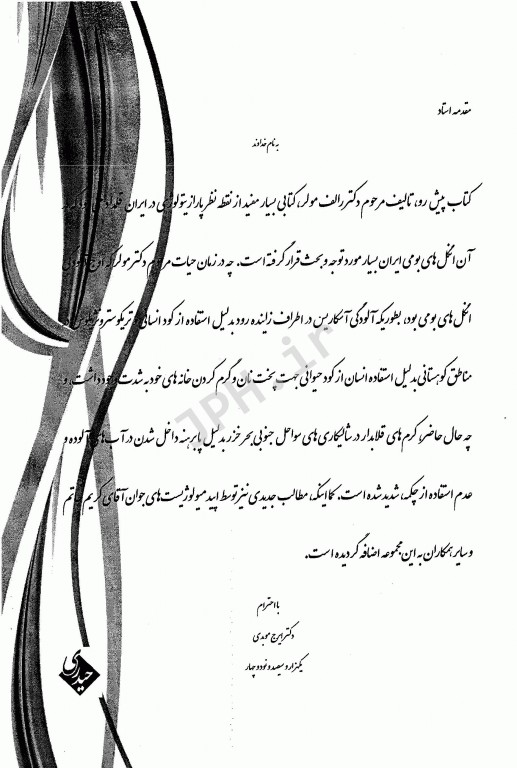 مقدمه استاد
به نام خداوند
کتاب پیش رو، تالیف مرحوم دکتر رالف مولر، کتابی بسیار مفید از نقطه نظر پارازیتولوژی در ایران
آن انگل های بومی ایران بسیار مورد توجه و بحث قرار گرفته است. چه در زمان حیات مرحوم دکتر مولر که
انگل های بومی بود، بطوریکه آلودگی آسکاریس در اطراف زاینده رود بدلیل استفاده از کود انسانی و تریکوسترونژیلوس در
مناطق کوهستانی بدلیل استفاده انسان از کود حیوانی جهت پخت نان و گرم کردن خانه های خود به شدت وجود داشت، و
چه حال حاضر، کرم های قلابدار در شالیکاری های سواحل جنوبی بحر خزر بدلیل پابرهنه داخل شدن در آب های آلوده و
عدم استفاده از چکمه، شدید شده است. کما اینکه، مطالب جدیدی نیز توسط اپیدمیولوژیست های جوان آقای کریم
و سایر همکاران به این مجموعه اضافه گردیده است.
با احترام
دکتر ایرج موبدی
یکهزار و سیصد و نود و چهار
حیدری
JPH.ir